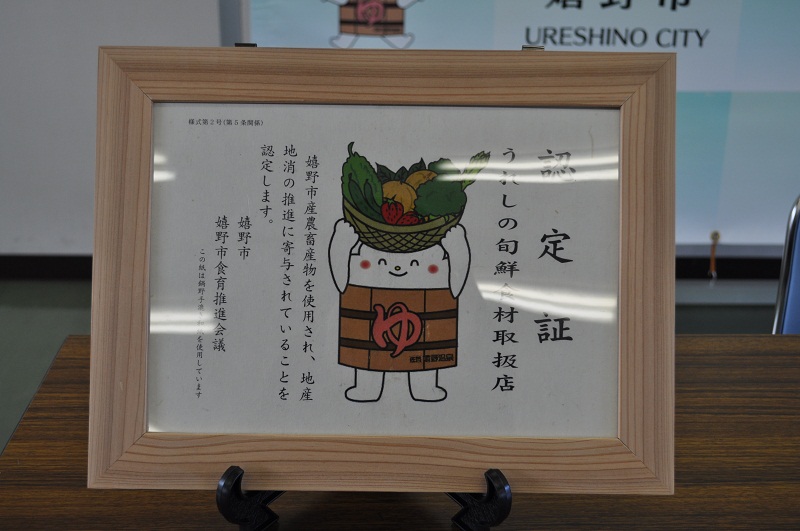 URESHINO CITY
様式第2号(第5条関係)
認定証
うれしの旬鮮食材取扱店
嬉野市産農畜産物を使用され、地産
地消の推進に寄与されていることを
認定します。
嬉野市
嬉野市食育推進会議
この紙は鍋野手漉和紙を使用しています
ゆ